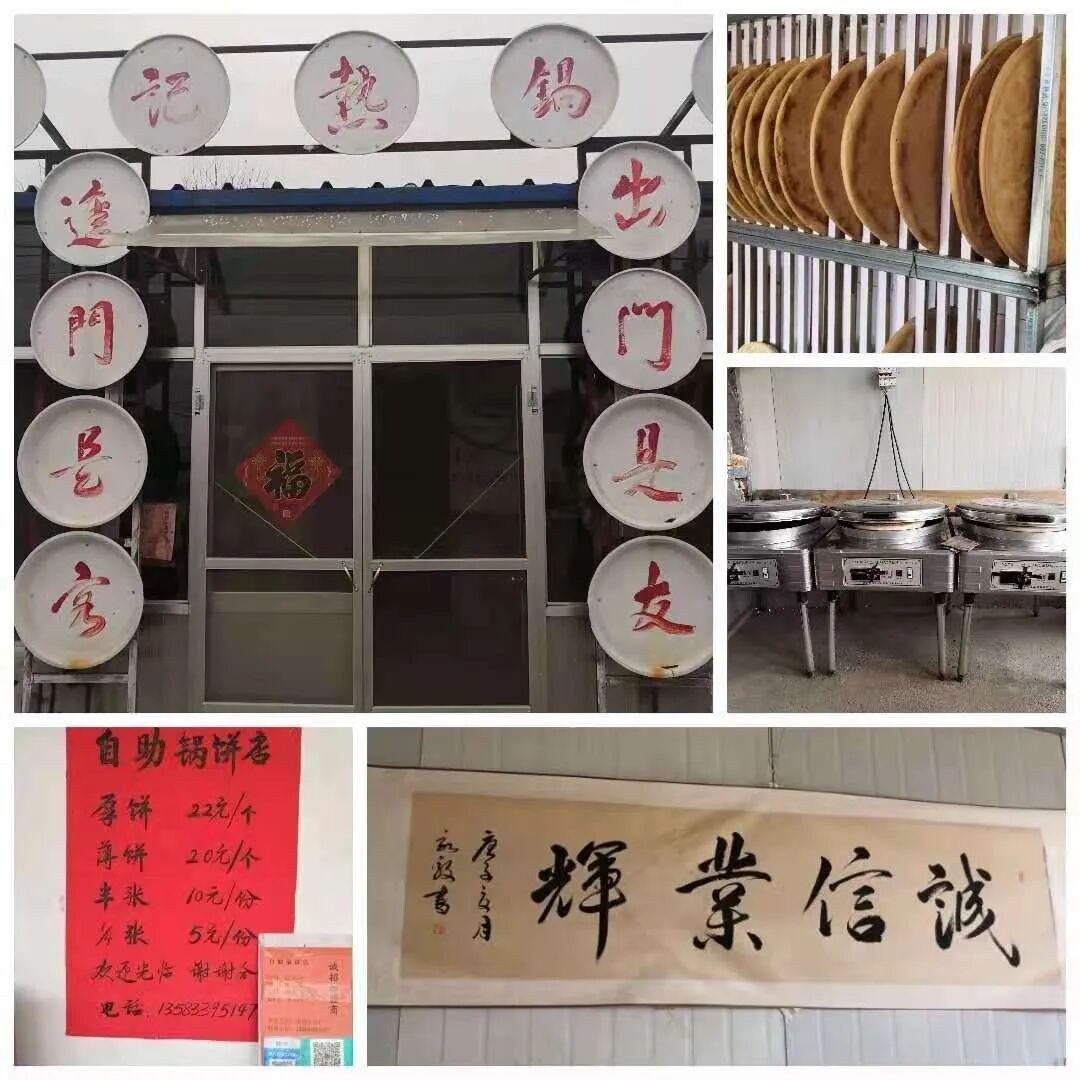 记熱鍋
進門是客
出门是友
福
自助锅饼店
厚饼 22元/个
薄饼 20元/个
半张 10元/份
¼张 5元/份
欢迎光临 谢谢合
电话:13583395147
誠信業輝
庚子 月
書